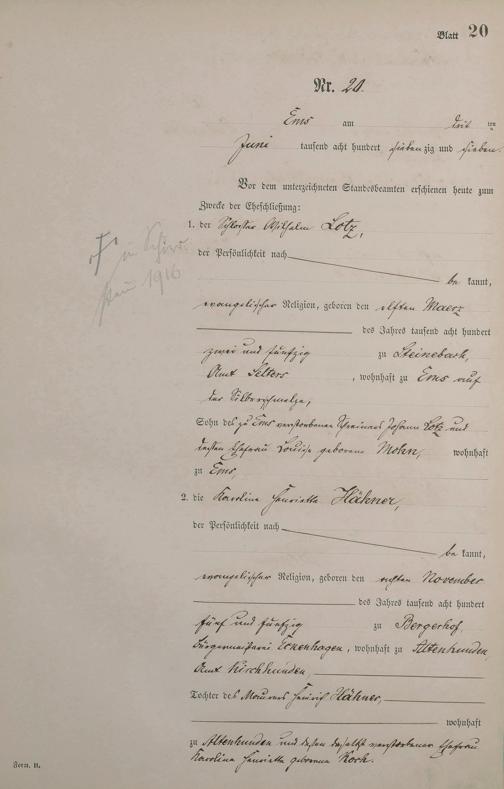 Blatt 20
Nr. 20.
Ems am drit ten
Juni tausend acht hundert siebenzig und sieben.
Vor dem unterzeichneten Standesbeamten erschienen heute zum
Zwecke der Eheschließung:
1. der Schlosser Wilhelm Lotz,
der Persönlichkeit nach
be kannt,
evangelischer Religion, geboren den elften Maerz
des Jahres tausend acht hundert
zwei und fünfzig zu Steinebach,
Amt Selters, wohnhaft zu Ems auf
der Silberschmelze,
Sohn des zu Ems verstorbenen Schreiners Johann Lotz und
dessen Ehefrau Louise geborene Mohn, wohnhaft
zu Ems,
2. die Karoline Henriette Hähner,
der Persönlichkeit nach
be kannt,
evangelischer Religion, geboren den achten November
des Jahres tausend acht hundert
fünf und fünfzig zu Bergerhof,
Bürgermeisterei Eckenhagen, wohnhaft zu Altenhunden,
Amt Kirchhunden,
Tochter des Maurers Heinrich Hähner,
wohnhaft
zu Altenhunden und dessen daselbst verstorbener Ehefrau
Karoline Henriette geborene Koch.
in
1916
Form. B.